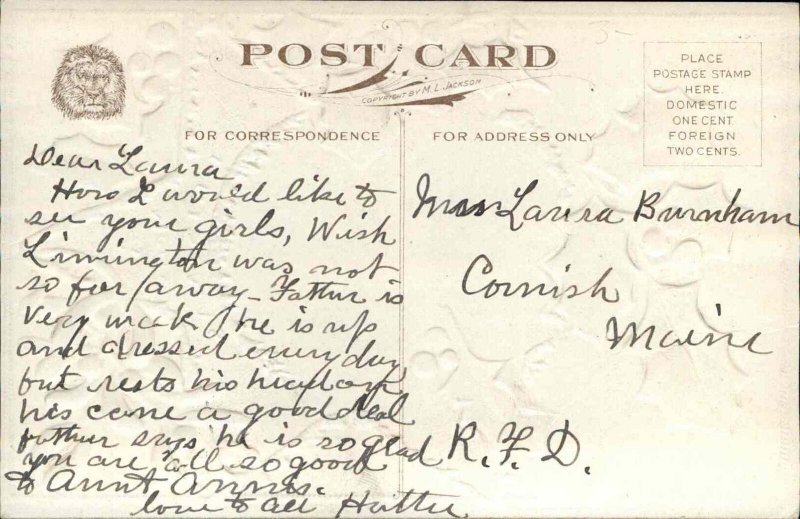 POST CARD
COPYRIGHT BY M. L. JACKSON
PLACE
POSTAGE STAMP
HERE.
DOMESTIC
ONE CENT.
FOREIGN
TWO CENTS.
FOR CORRESPONDENCE
FOR ADDRESS ONLY
Dear Laura
How I would like to
see your girls, Wish
Limington was not
so far away - Father is
very weak, he is up
and dressed every day
but rests his head on
his cane a good deal
father says he is so glad
you are all so good
to Aunt Annis.
love to all Hattie
Laura Burnham
Cornish
Maine
R. F. D.